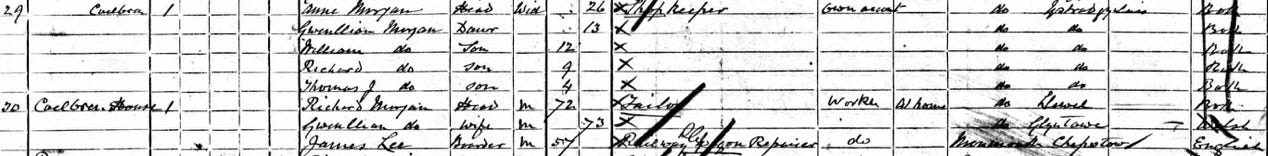 29 Coelbren 1 Anne Morgan Head Wid 26 X Shopkeeper own account do Ystradgynlais Both
Gwenllian Morgan Daur 13 X do do Both
William do Son 12 X do do Both
Richard do son 9 X do do Both
Thomas J do son 4 X do do Both
30 Coelbren House 1 Richard Morgan Head M 72 Tailor Worker At home do Llywel Both
Gwenllian do Wife M 73 X do Glyntawe Welsh
James Lee Boarder M 57 Railway Wagon Repairer do Monmouth Chepstow English